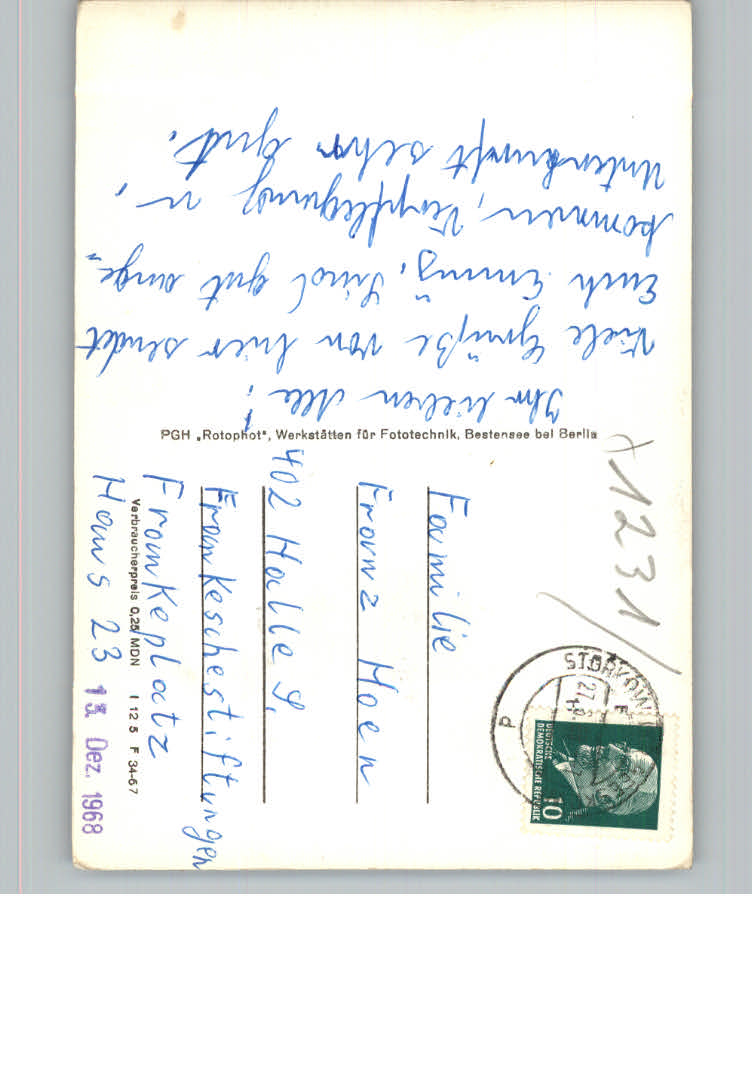 Ihr lieben Alle!
Viele Grüße von hier sendet
Euch Sind gut ange-
kommen, Verpflegung u.
Unterkunft sehr gut.
PGH „Rotophot“, Werkstätten für Fototechnik, Bestensee bei Berlin
Familie
Franz Hoen
402 Halle S.
Frankeschestiftungen
Frankeplatz
Haus 23
Verbraucherpreis 0,25 MDN I 12 5 F 34-67
13. Dez. 1968
1231
STORKOW
27.
DEUTSCHE
DEMOKRATISCHE REPUBLIK
10